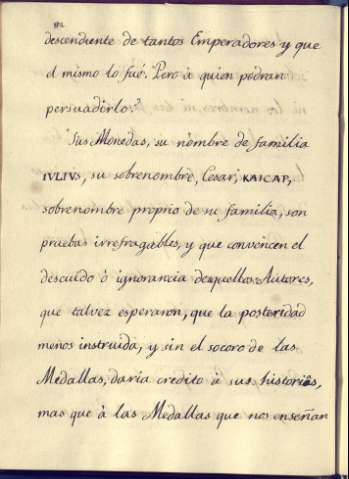 descendiente de tantos Emperadores y que
el mismo lo fué. Pero à quien podran
persuadirlo?
Sus Monedas, su nombre de familia
IVLIVS, su sobrenombre, Cesar, KAICAP,
sobrenombre proprio de su familia, son
pruebas irrefragables, y que convencen el
descuido ò ignorancia de aquellos Autores,
que talvez esperaron, que la posteridad
menos instruida, y sin el socoro de las
Medallas, daria credito à sus historias,
mas que à las Medallas que nos enseñan